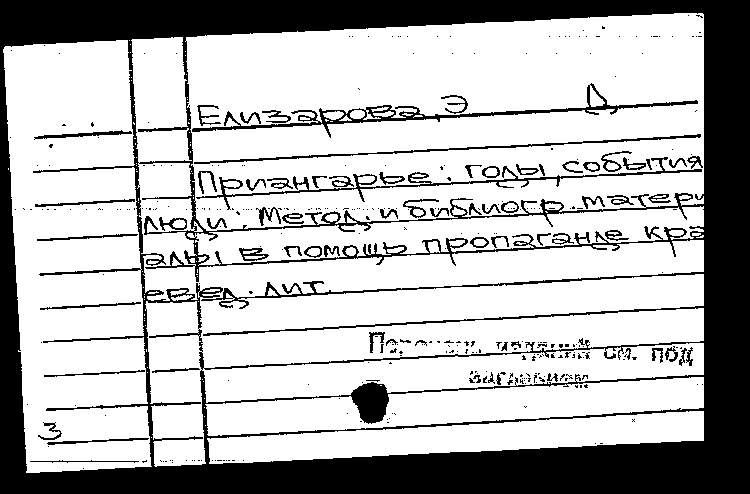 Елизарова, Э Д
Приангарье: годы, события
люди: Метод. и библиогр. матери
алы в помощь пропаганде кра
евед. лит.
Перечень изданий см. под
заглавием
3